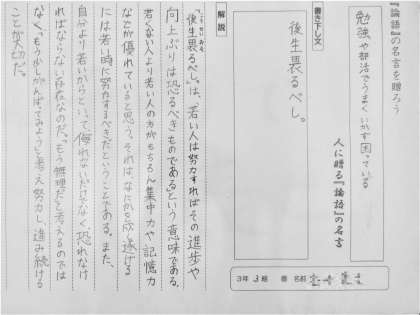 『論語』の名言を贈ろう
勉強や部活でうまくいかず困っている
人に贈る『論語』の名言
3年 3組 番 名前
書き下し文
後生畏るべし。
解説
「後生畏るべし。」は、若い人は努力すればその進歩や
向上ぶりは恐るべきものである」という意味である。
若くない人より若い人の方がもちろん集中力や記憶力
などが優れていると思う。それは、なにかを成し遂げる
には若い時に努力するべきだということである。また、
自分より若いからといって侮れないだけでなく、恐れなけ
ればならない存在なのだ。「もう無理だ」と考えるのでは
なく、「もう少しがんばってみよう」と考え努力し、進み続ける
ことが大切だ。